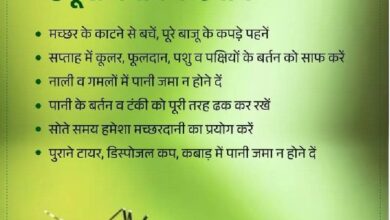 मच्छर के काटने से बचें, पूरे बाजू के कपड़े पहनें
सप्ताह में कूलर, फूलदान, पशु व पक्षियों के बर्तन को साफ करें
नाली व गमलों में पानी जमा न होने दें
पानी के बर्तन व टंकी को पूरी तरह ढक कर रखें
सोते समय हमेशा मच्छरदानी का प्रयोग करें
पुराने टायर, डिस्पोजल कप, कबाड़ में पानी जमा न होने दें